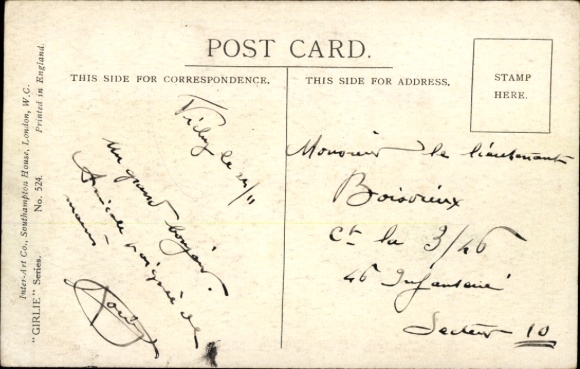 POST CARD.
THIS SIDE FOR CORRESPONDENCE.
THIS SIDE FOR ADDRESS.
STAMP
HERE.
Inter-Art Co., Southampton House, London, W.C.
Printed in England.
"GIRLIE" Series. No. 524.
Vichy le 24/11
Un grand bonjour.
Amicale poignée de
mains
Monsieur le lieutenant
Boisvieux
Ct la 3/46
46 Infanterie
Secteur 10